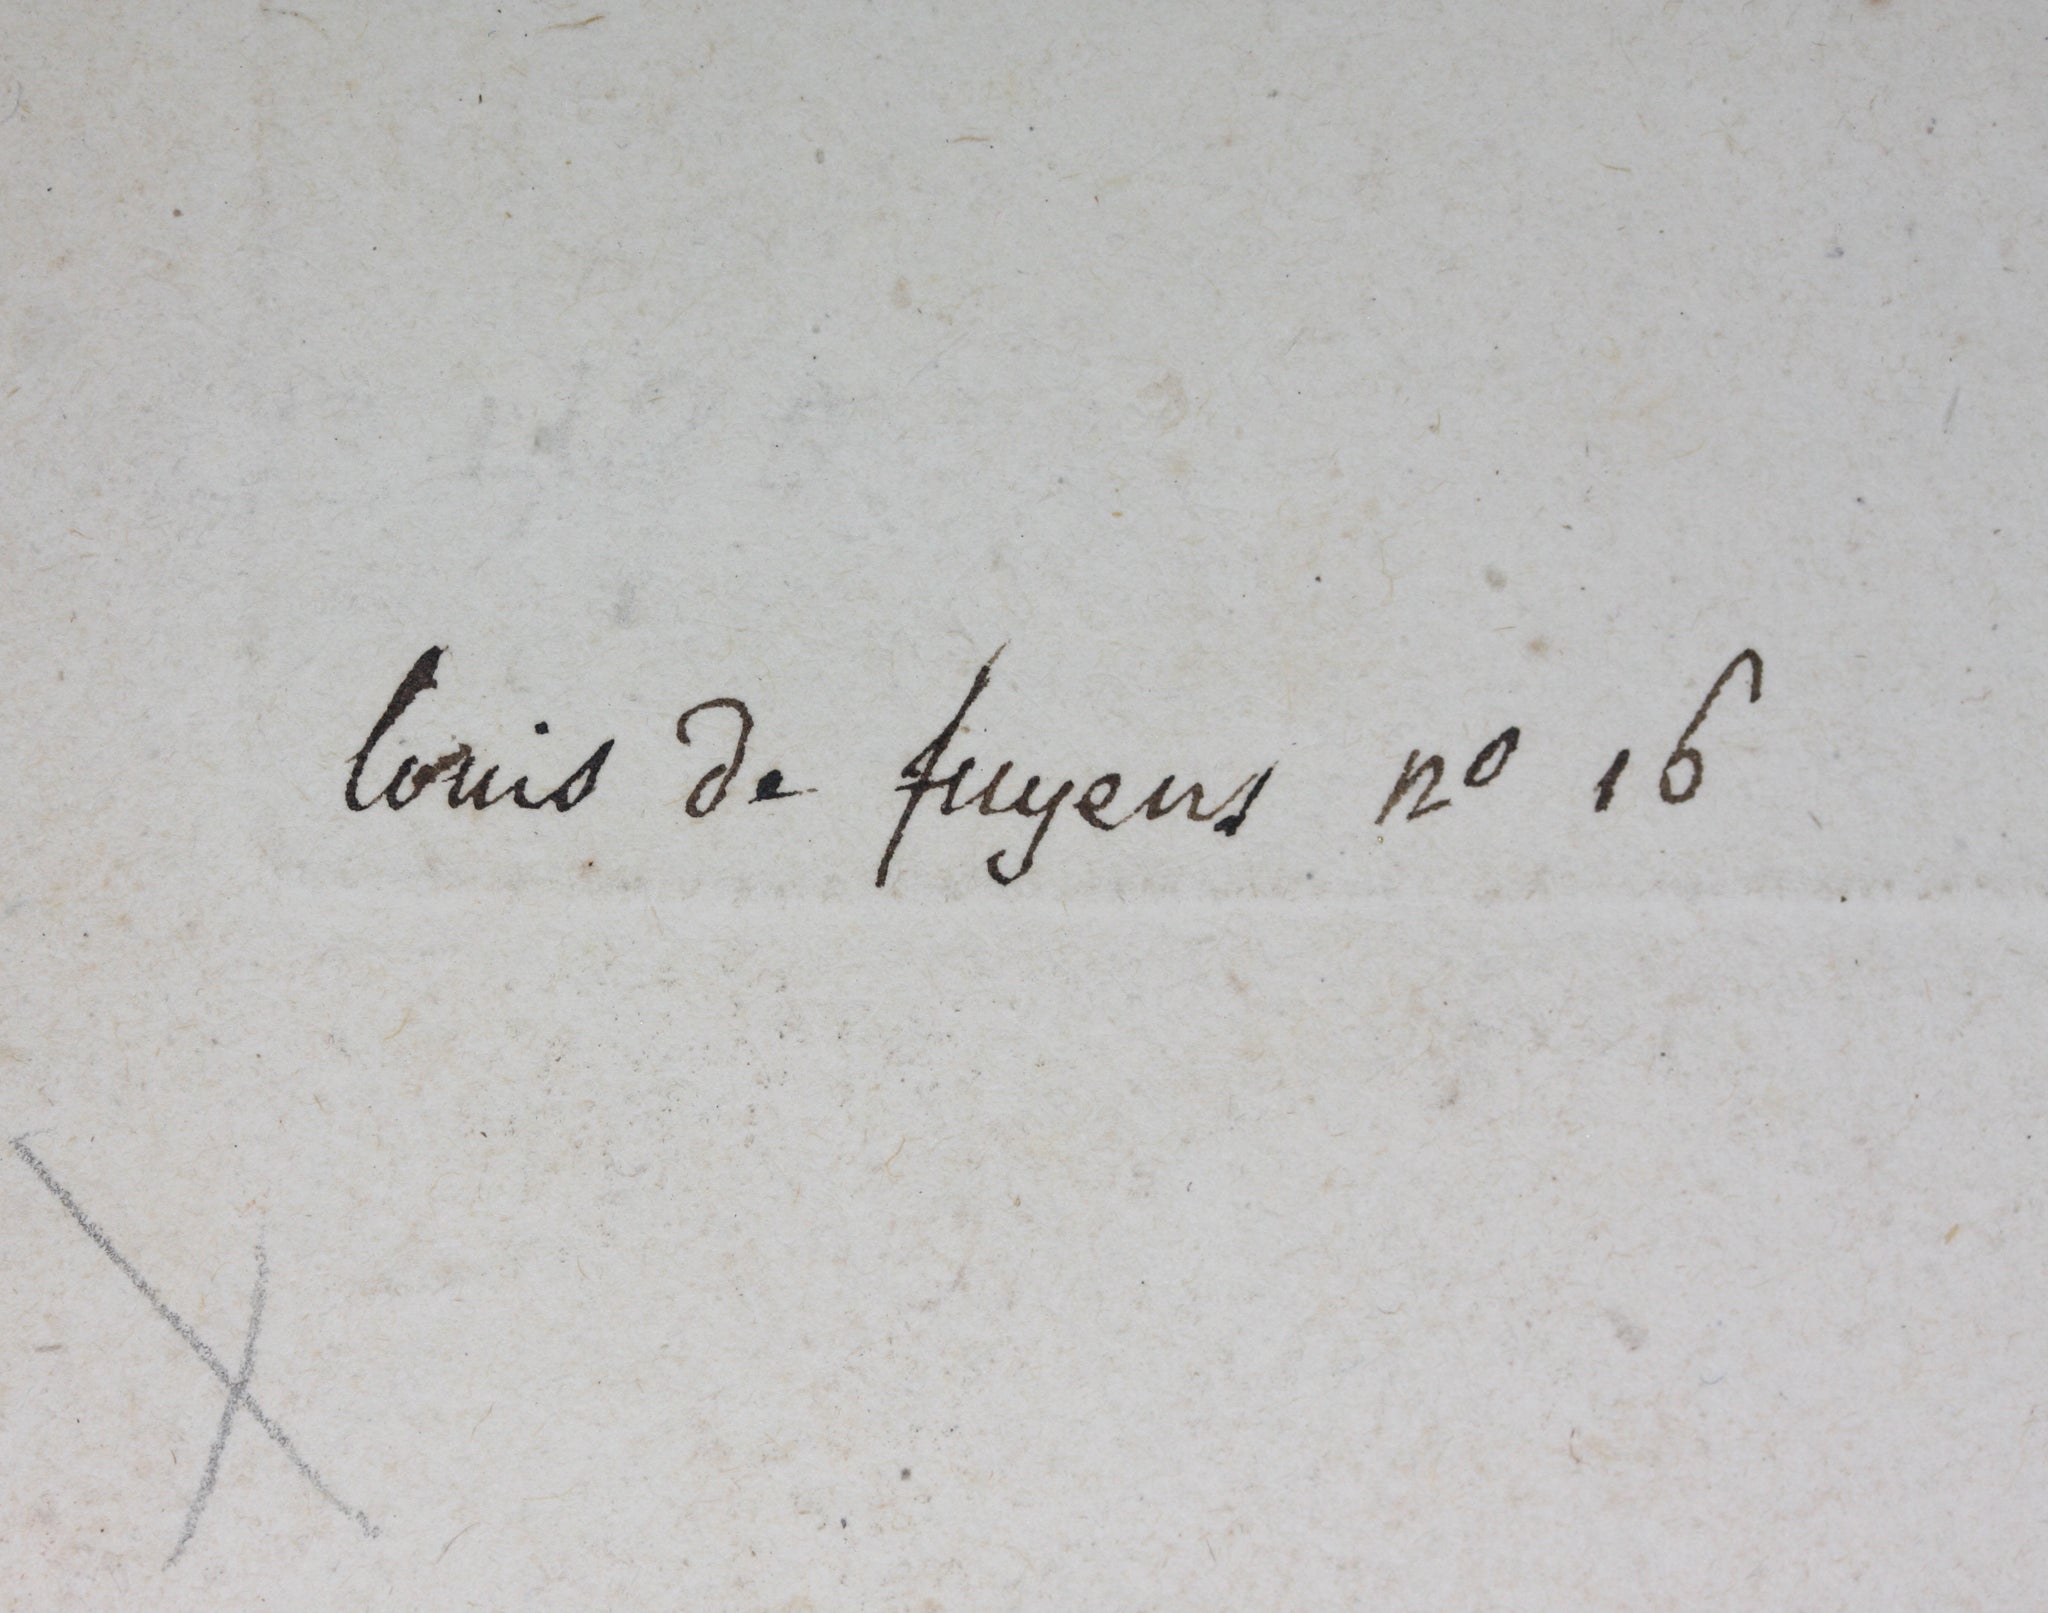 louis de fuyens no 16